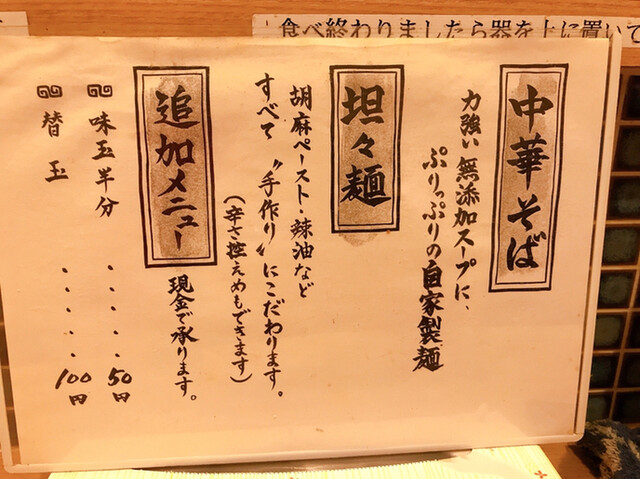 食べ終わりましたら器を上に置いて
中華そば
力強い無添加スープに、
ぷりっぷりの自家製麺
坦々麺
胡麻ペースト・辣油など
すべて〝手作り〟にこだわります。
(辛さ控えめもできます)
追加メニュー
現金で承ります。
味玉半分・・・・・50円
替玉・・・・・100円